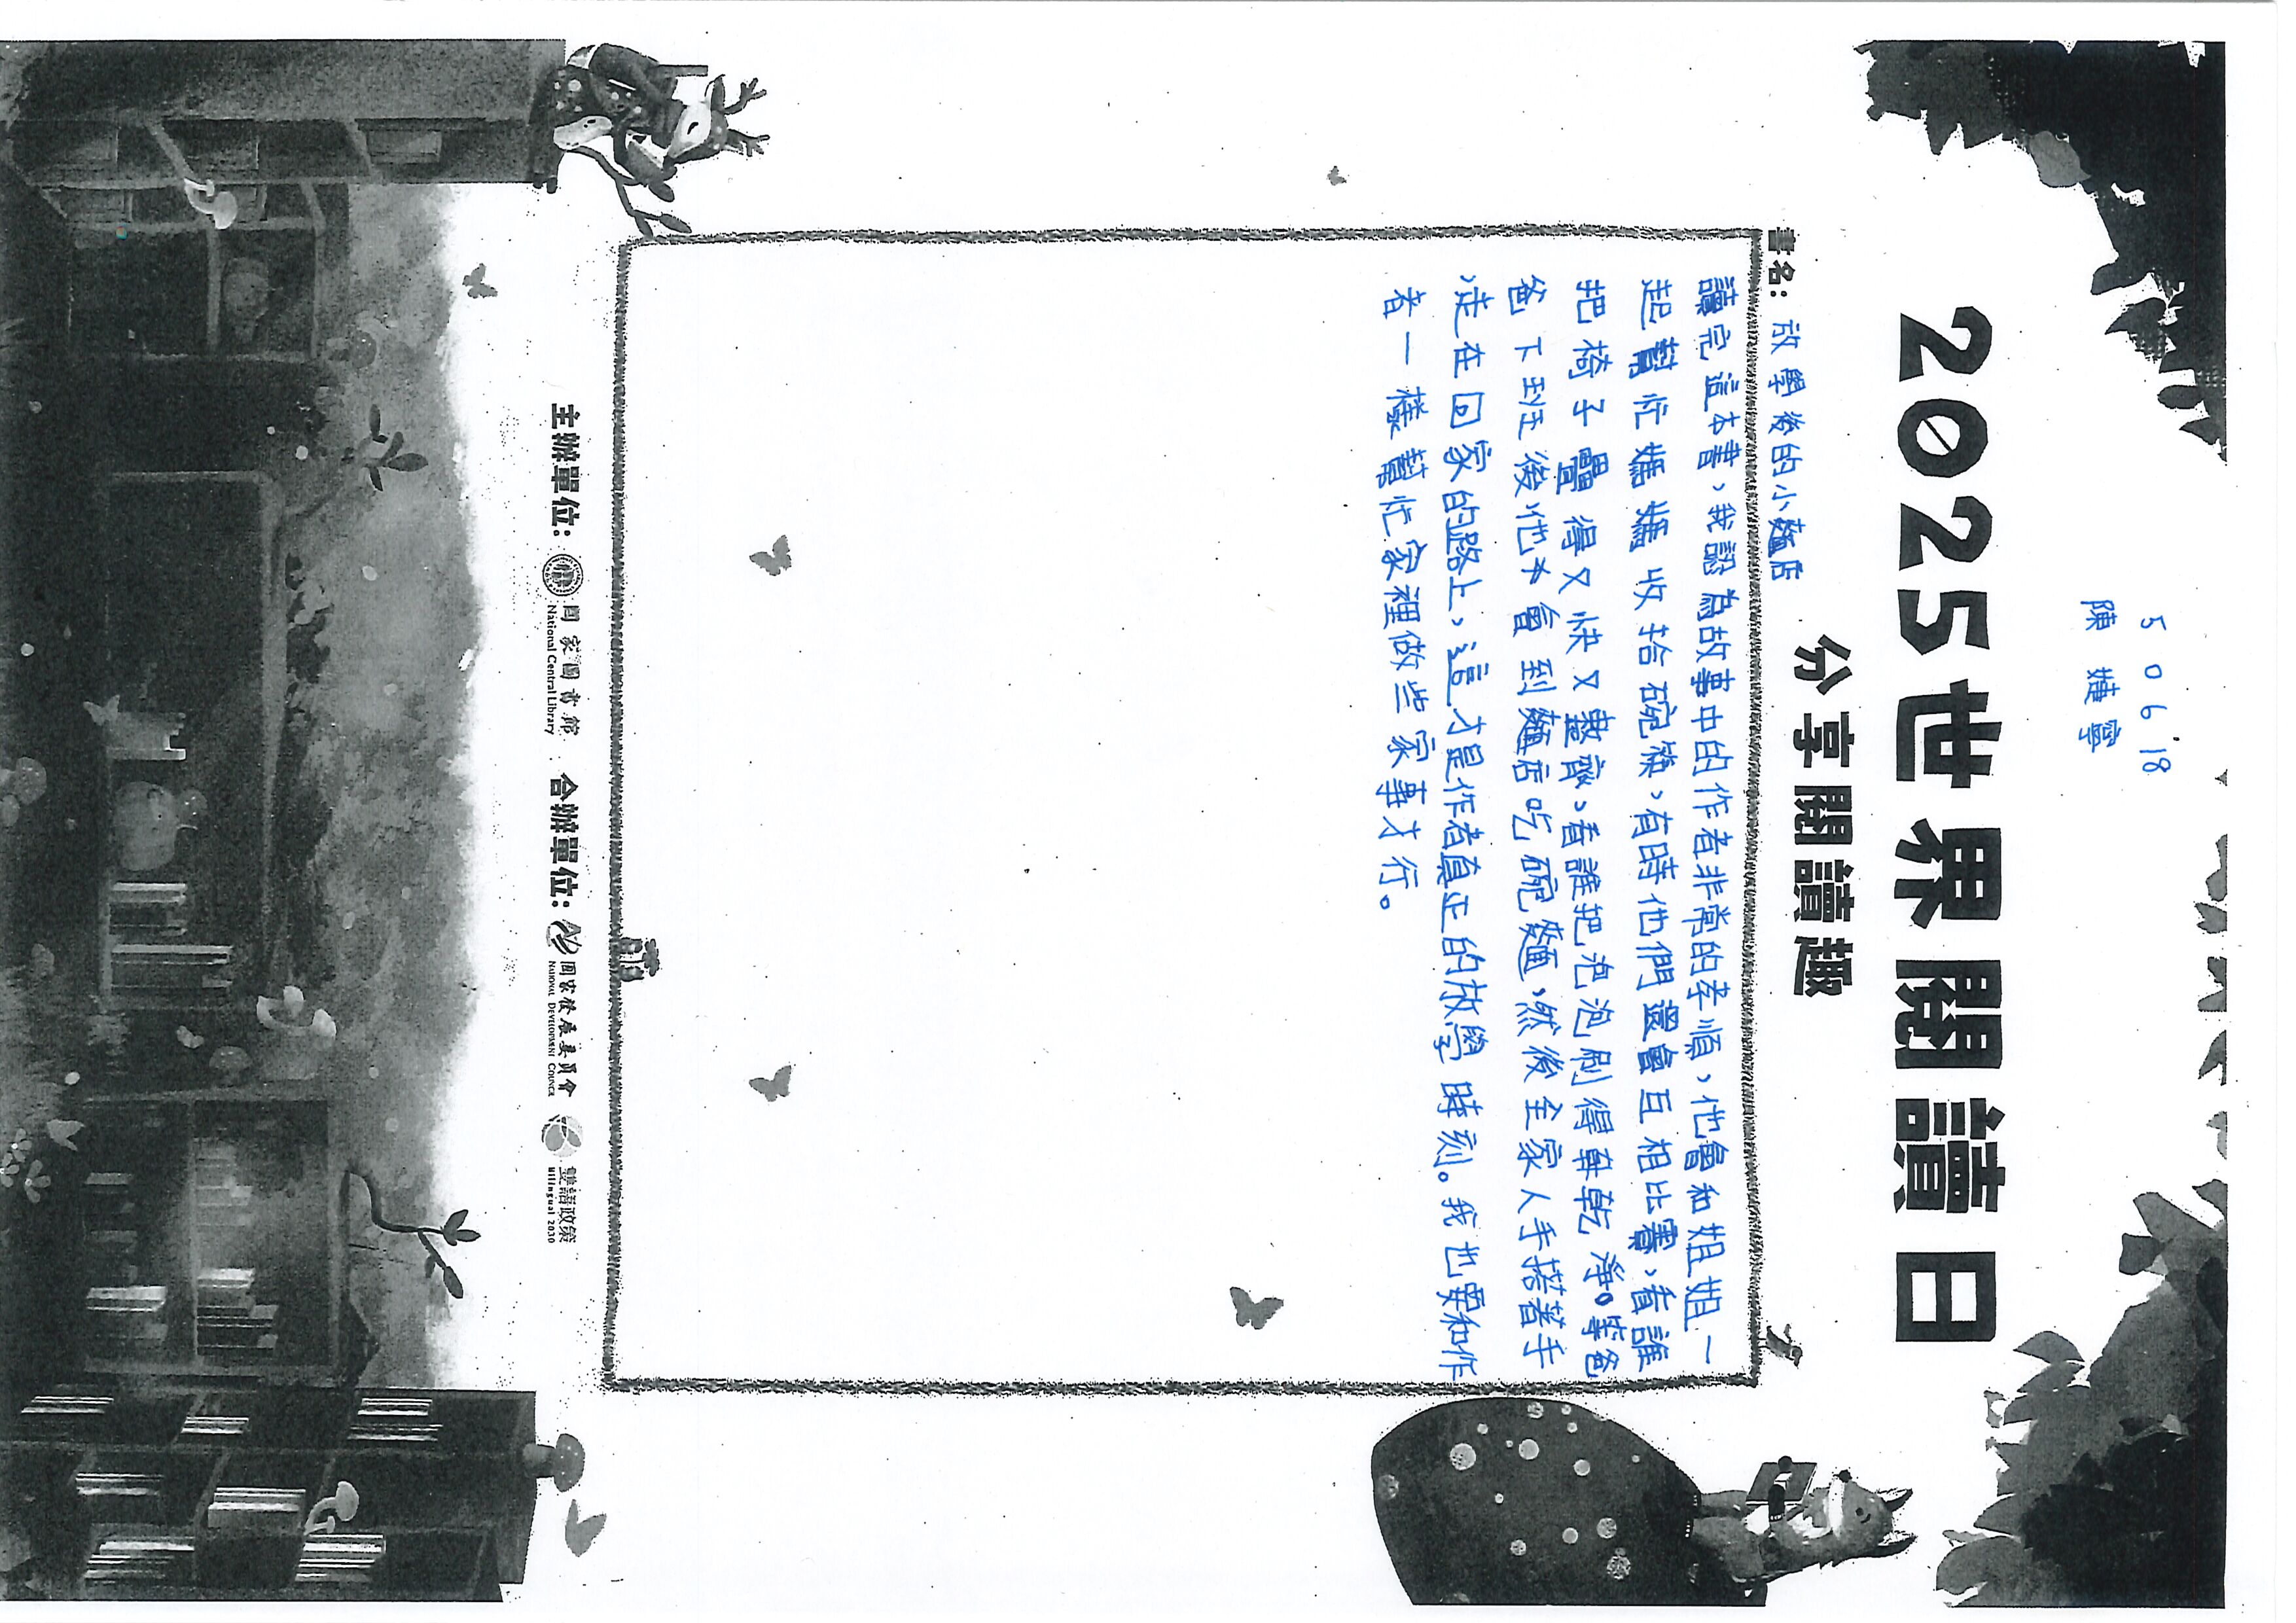 506 18
陳婕寧
2025世界閱讀日
分享閱讀趣
書名：放學後的小麵店
讀完這本書，我認為故事中的作者非常的孝順，他會和姐姐一
起幫忙媽媽收拾碗筷，有時他們還會互相比賽，看誰
把椅子疊得又快又整齊，看誰把泡泡刷得乾乾淨。等爸
爸下班後，他才會到麵店吃碗麵，然後全家人手搭著手
，走在回家的路上，這才是作者真正的放學時刻。我也要和作
者一樣幫忙家裡做些家事才行。
主辦單位： 國家圖書館 National Central Library 合辦單位： 國家發展委員會 NATIONAL DEVELOPMENT COUNCIL 雙語政策 Bilingual 2030